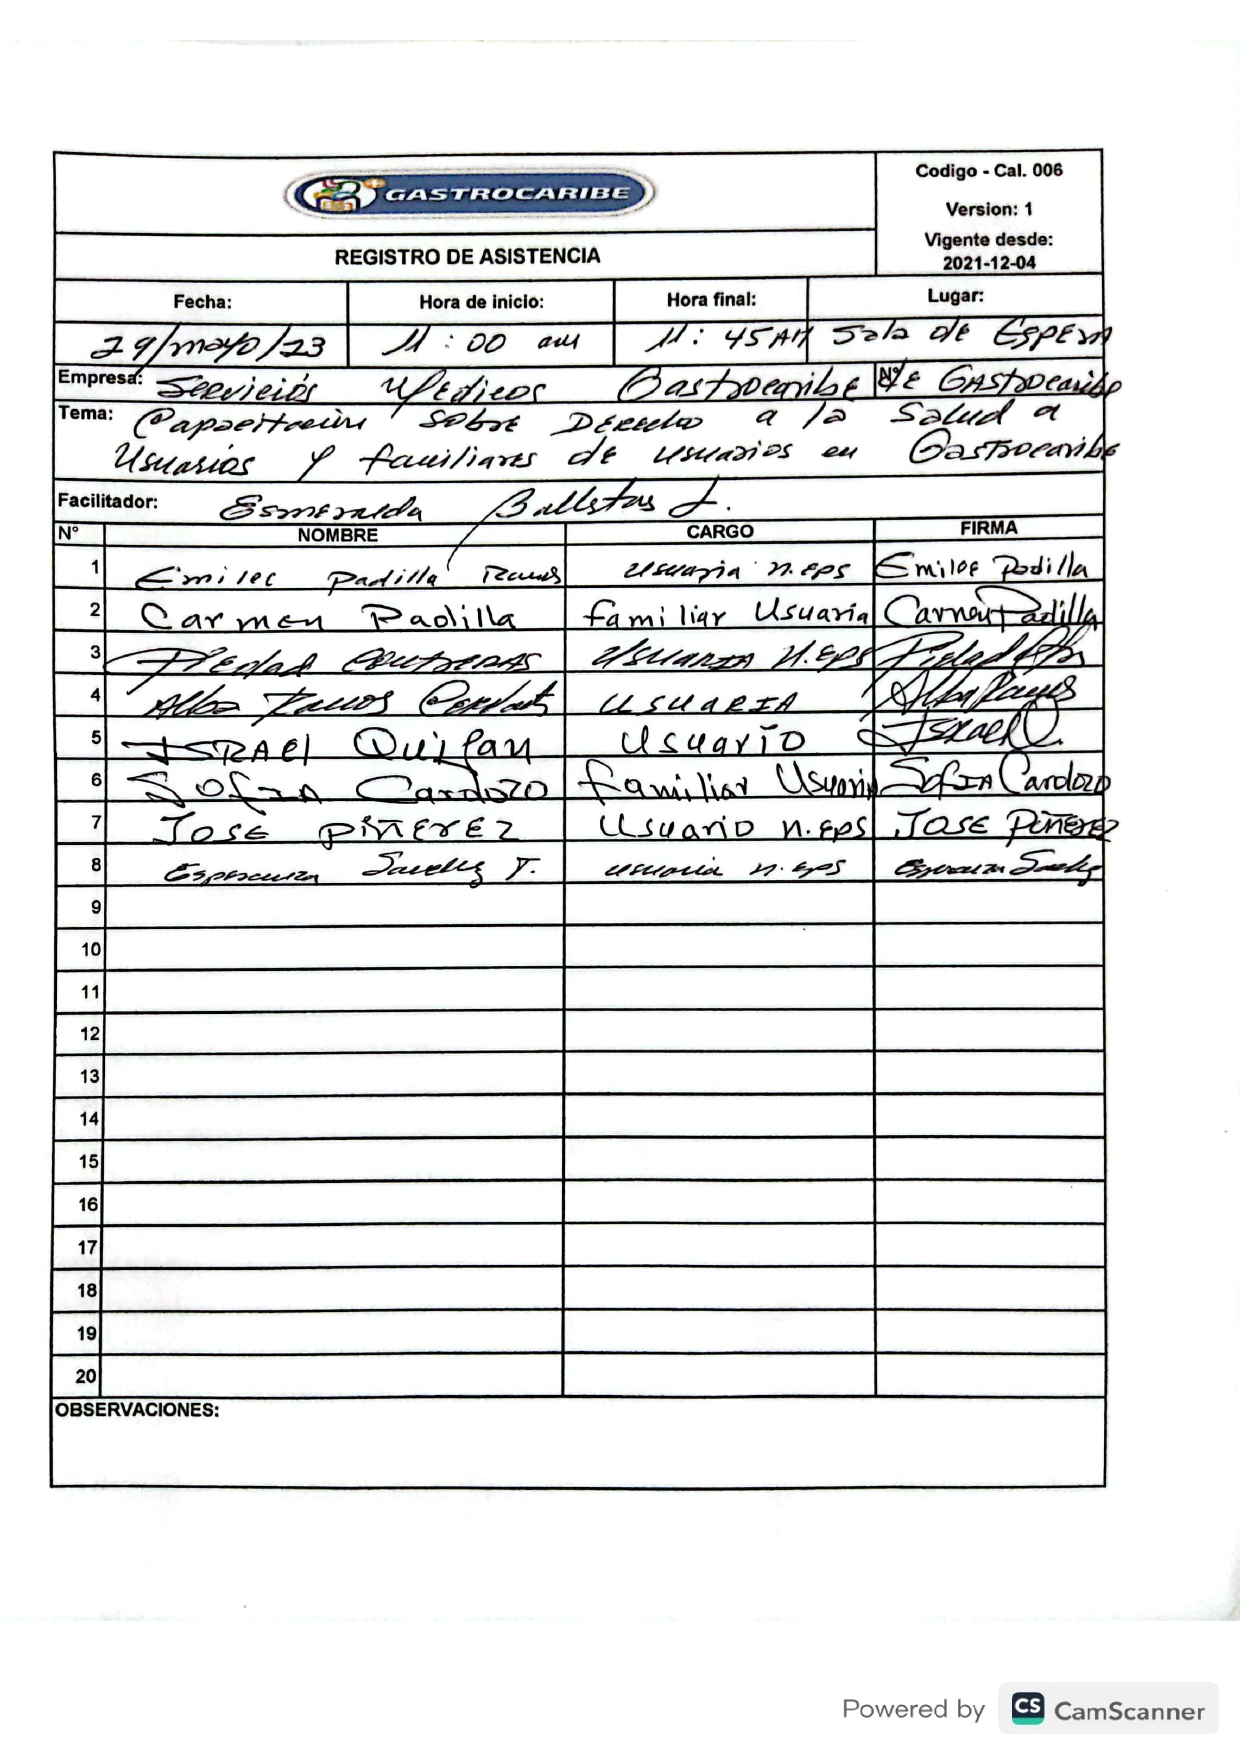 GASTROCARIBE
Codigo - Cal. 006
Version: 1
Vigente desde:
2021-12-04
REGISTRO DE ASISTENCIA
Fecha: Hora de inicio: Hora final: Lugar:
29/mayo/23 11:00 am 11:45AM Sala de Espera
Empresa: Servicios Medicos Gastrocaribe DE GAstrocaribe
Tema: Capacitación sobre Derecho a la Salud a
Usuarios y familiares de usuarios en Gastrocaribe
Facilitador: Esmeralda Ballestas J.
N° NOMBRE CARGO FIRMA
1 Emilec Padilla Ramos usuaria n.eps Emilec Padilla
2 Carmen Padilla familiar Usuaria Carmen Padilla
3 Piedad Contreras Usuaria N.eps Piedad
4 Alba Ramos usuaria Alba Ramos
5 ISRAEl Quifan Usuario Israel Q.
6 Sofia Cardozo familiar Usuario Sofia Cardozo
7 Jose piñerez Usuario n.eps Jose Piñerez
8 Esperanza Sanchez T. usuaria n.eps Esperanza Sanchez
9
10
11
12
13
14
15
16
17
18
19
20
OBSERVACIONES:
Powered by CS CamScanner